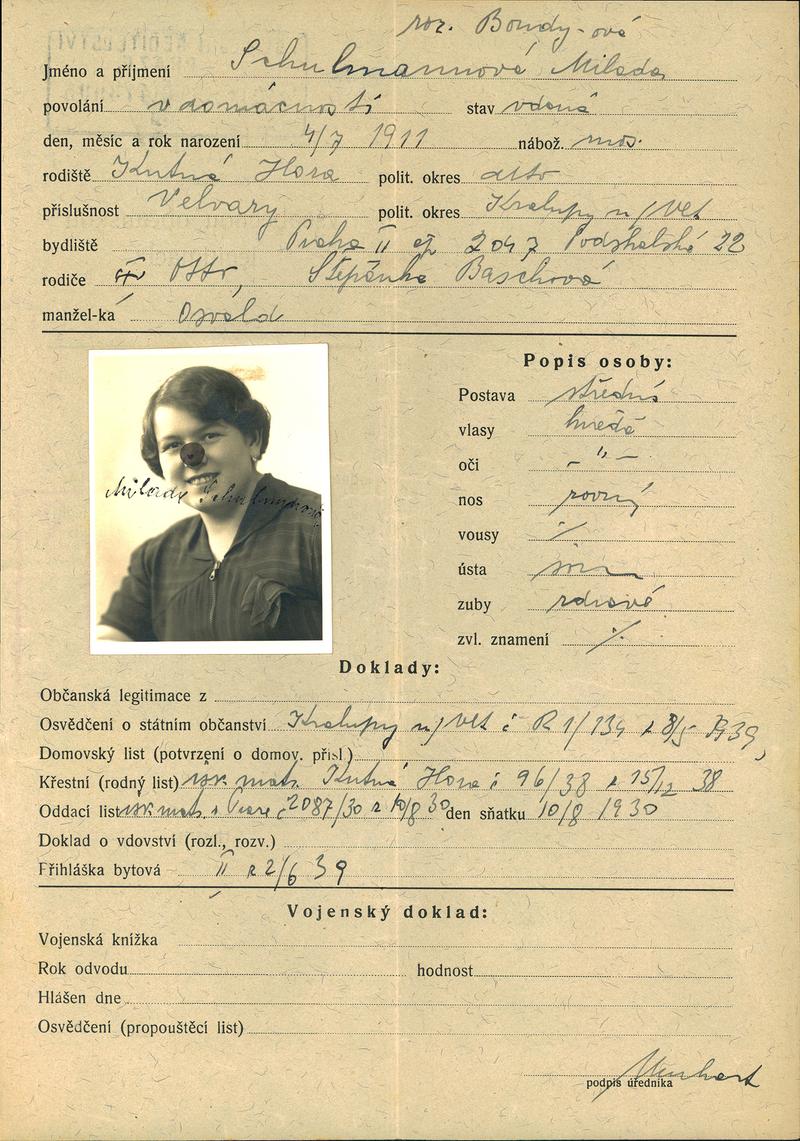 roz. Bondy-ová
Jméno a příjmení Schulmannová Milada
povolání v domácnosti stav vdaná
den, měsíc a rok narození 4/7 1911 nábož. mos.
rodiště Kutná Hora polit. okres dtto
příslušnost Velvary polit. okres Kralupy n/Vlt
bydliště Praha II čp 2047 Podskalská 22
rodiče Otto, Štěpánka Baschová
manžel-ka Osvald
Popis osoby:
Postava střední
vlasy hnědé
oči – " –
nos rovný
vousy ⁒
ústa
zuby zdravé
zvl. znamení ⁒
Milada Schulmannová
Doklady:
Občanská legitimace z
Osvědčení o státním občanství Kralupy n/Vlt č R 1/134 z 8/5 1939,
Domovský list (potvrzení o domov. přísl.)
Křestní (rodný list) isr. mat. Kutná Hora č 96/38 z 15/12 38
Oddací list isr. mat. v Praze č 2087/30 z 10/8 30 den sňatku 10/8 1930
Doklad o vdovství (rozl., rozv.)
Přihláška bytová II z 2/6 39
Vojenský doklad:
Vojenská knížka
Rok odvodu hodnost
Hlášen dne
Osvědčení (propouštěcí list)
podpis úředníka